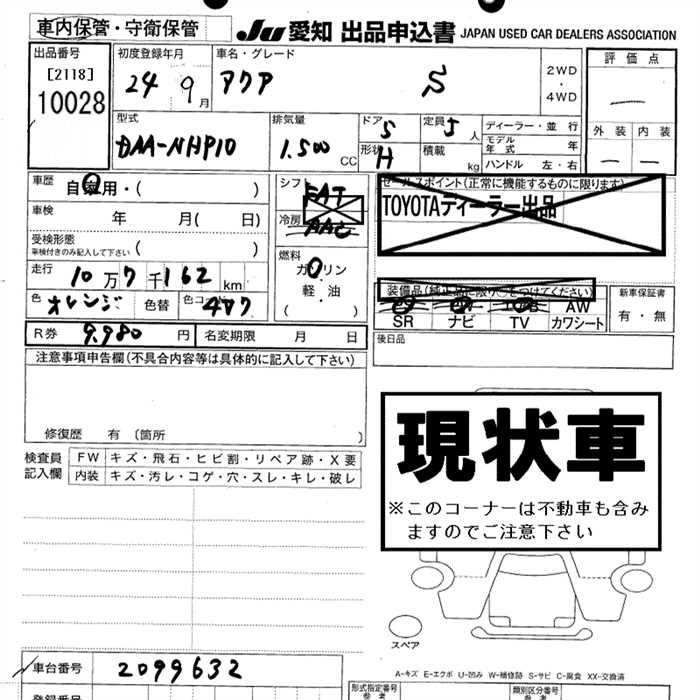 車内保管・守衛保管
JU 愛知 出品申込書 JAPAN USED CAR DEALERS ASSOCIATION
出品番号
[2118]
10028
初度登録年月
24 9月
車名・グレード
アクア S
2WD
・
4WD
評価点
—
外装 内装
— —
型式
DAA-NHP10
排気量
1.500 CC
ドア 5
形状 H
定員 5 人
積載 kg
ディーラー・並行
モデル年式 年
ハンドル 左・右
車歴
自家用・( )
車検 年 月( 日)
受検形態
車検付きのみ記入して下さい ( )
走行 10万7千162 km
色 オレンジ 色替 色コード 4R7
シフト FAT
冷房 AAC
燃料
ガソリン
軽・油
( )
セールスポイント(正常に機能するものに限ります)
TOYOTAディーラー出品
装備品(純正品に限り○をつけてください)
AW
SR ナビ TV カワシート
新車保証書
有・無
R券 9.980 円 名変期限 月 日
後日品
注意事項申告欄(不具合内容等は具体的に記入して下さい)
修復歴 有 (箇所 )
現状車
※このコーナーは不動車も含み
ますのでご注意下さい
検査員記入欄
FW キズ・飛石・ヒビ割・リペア跡・X要
内装 キズ・汚レ・コゲ・穴・スレ・キレ・破レ
スペア
A-キズ E-エクボ U-凹み W-補修跡 S-サビ C-腐食 XX-交換済
車台番号 2099632
登録番号
形式指定番号
参考
類別区分番号
参考